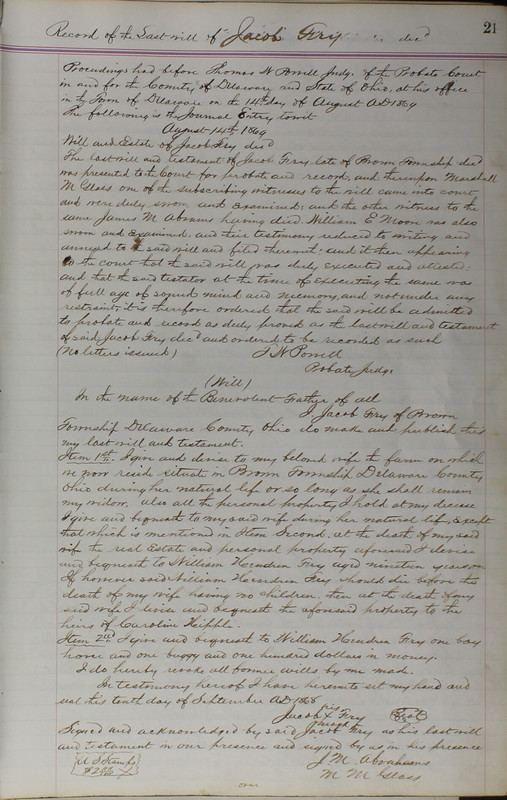 21
Record of the Last will of Jacob Fry decd
Proceedings had before Thomas W Powell Judge of the Probate Court
in and for the County of Delaware and State of Ohio, at his office
in the Town of Delaware on the 14th day of August AD 1869
The following is the Journal Entry towit
August 14th 1869
Will and Estate of Jacob Fry decd
The last will and testament of Jacob Fry late of Brown Township decd
was presented to the Court for probate and record, and thereupon Marshall
M Glass one of the subscribing witnesses to the will came into court
and were duly sworn and examined; and the other witness to the
same James M Abrams having died William E Moore was also
sworn and examined, and their testimony reduced to writing and
annexed to said will and filed therewith; and it then appearing
to the court that the said will was duly executed and attested;
and that the said testator at the time of executing the same was
of full age of sound mind and memory, and not under any
restraint, it is therefore ordered that the said will be admitted
to probate and record as duly proved as the last will and testament
of said Jacob Fry decd and ordered to be recorded as such
(No letters issued) T W Powell
Probate Judge
(Will)
In the name of the Benevolent Father of all
I Jacob Fry of Brown
Township Delaware County Ohio do make and publish this
my last will and testament.
Item 1st. I give and devise to my beloved wife the farm on which
we now reside situate in Brown Township Delaware County
Ohio during her natural life or so long as she shall remain
my widow. also all the personal property I hold at my decease
I give and bequeath to my said wife during her natural life, except
that which is mentioned in Item Second. at the death of my said
wife the real Estate and personal property aforesaid I devise
and bequeath to William Hendren Fry aged nineteen years
If however said William Hendren Fry should die before the
death of my wife having no children. then at the death of my
said wife I devise and bequeath the aforesaid property to the
heirs of Caroline Hipple.
Item 2nd I give and bequeath to William Hendren Fry one bay
horse and one buggy and one hundred dollars in money.
I do hereby revoke all former wills by me made.
In testimony hereof I have hereunto set my hand and
seal this tenth day of September AD 1868
Jacob his X mark Fry Seal
Signed and acknowledged by said Jacob Fry as his last will
and testament in our presence and signed by us in his presence
U S Stamps J. M. Abrahams
M M Glass
over